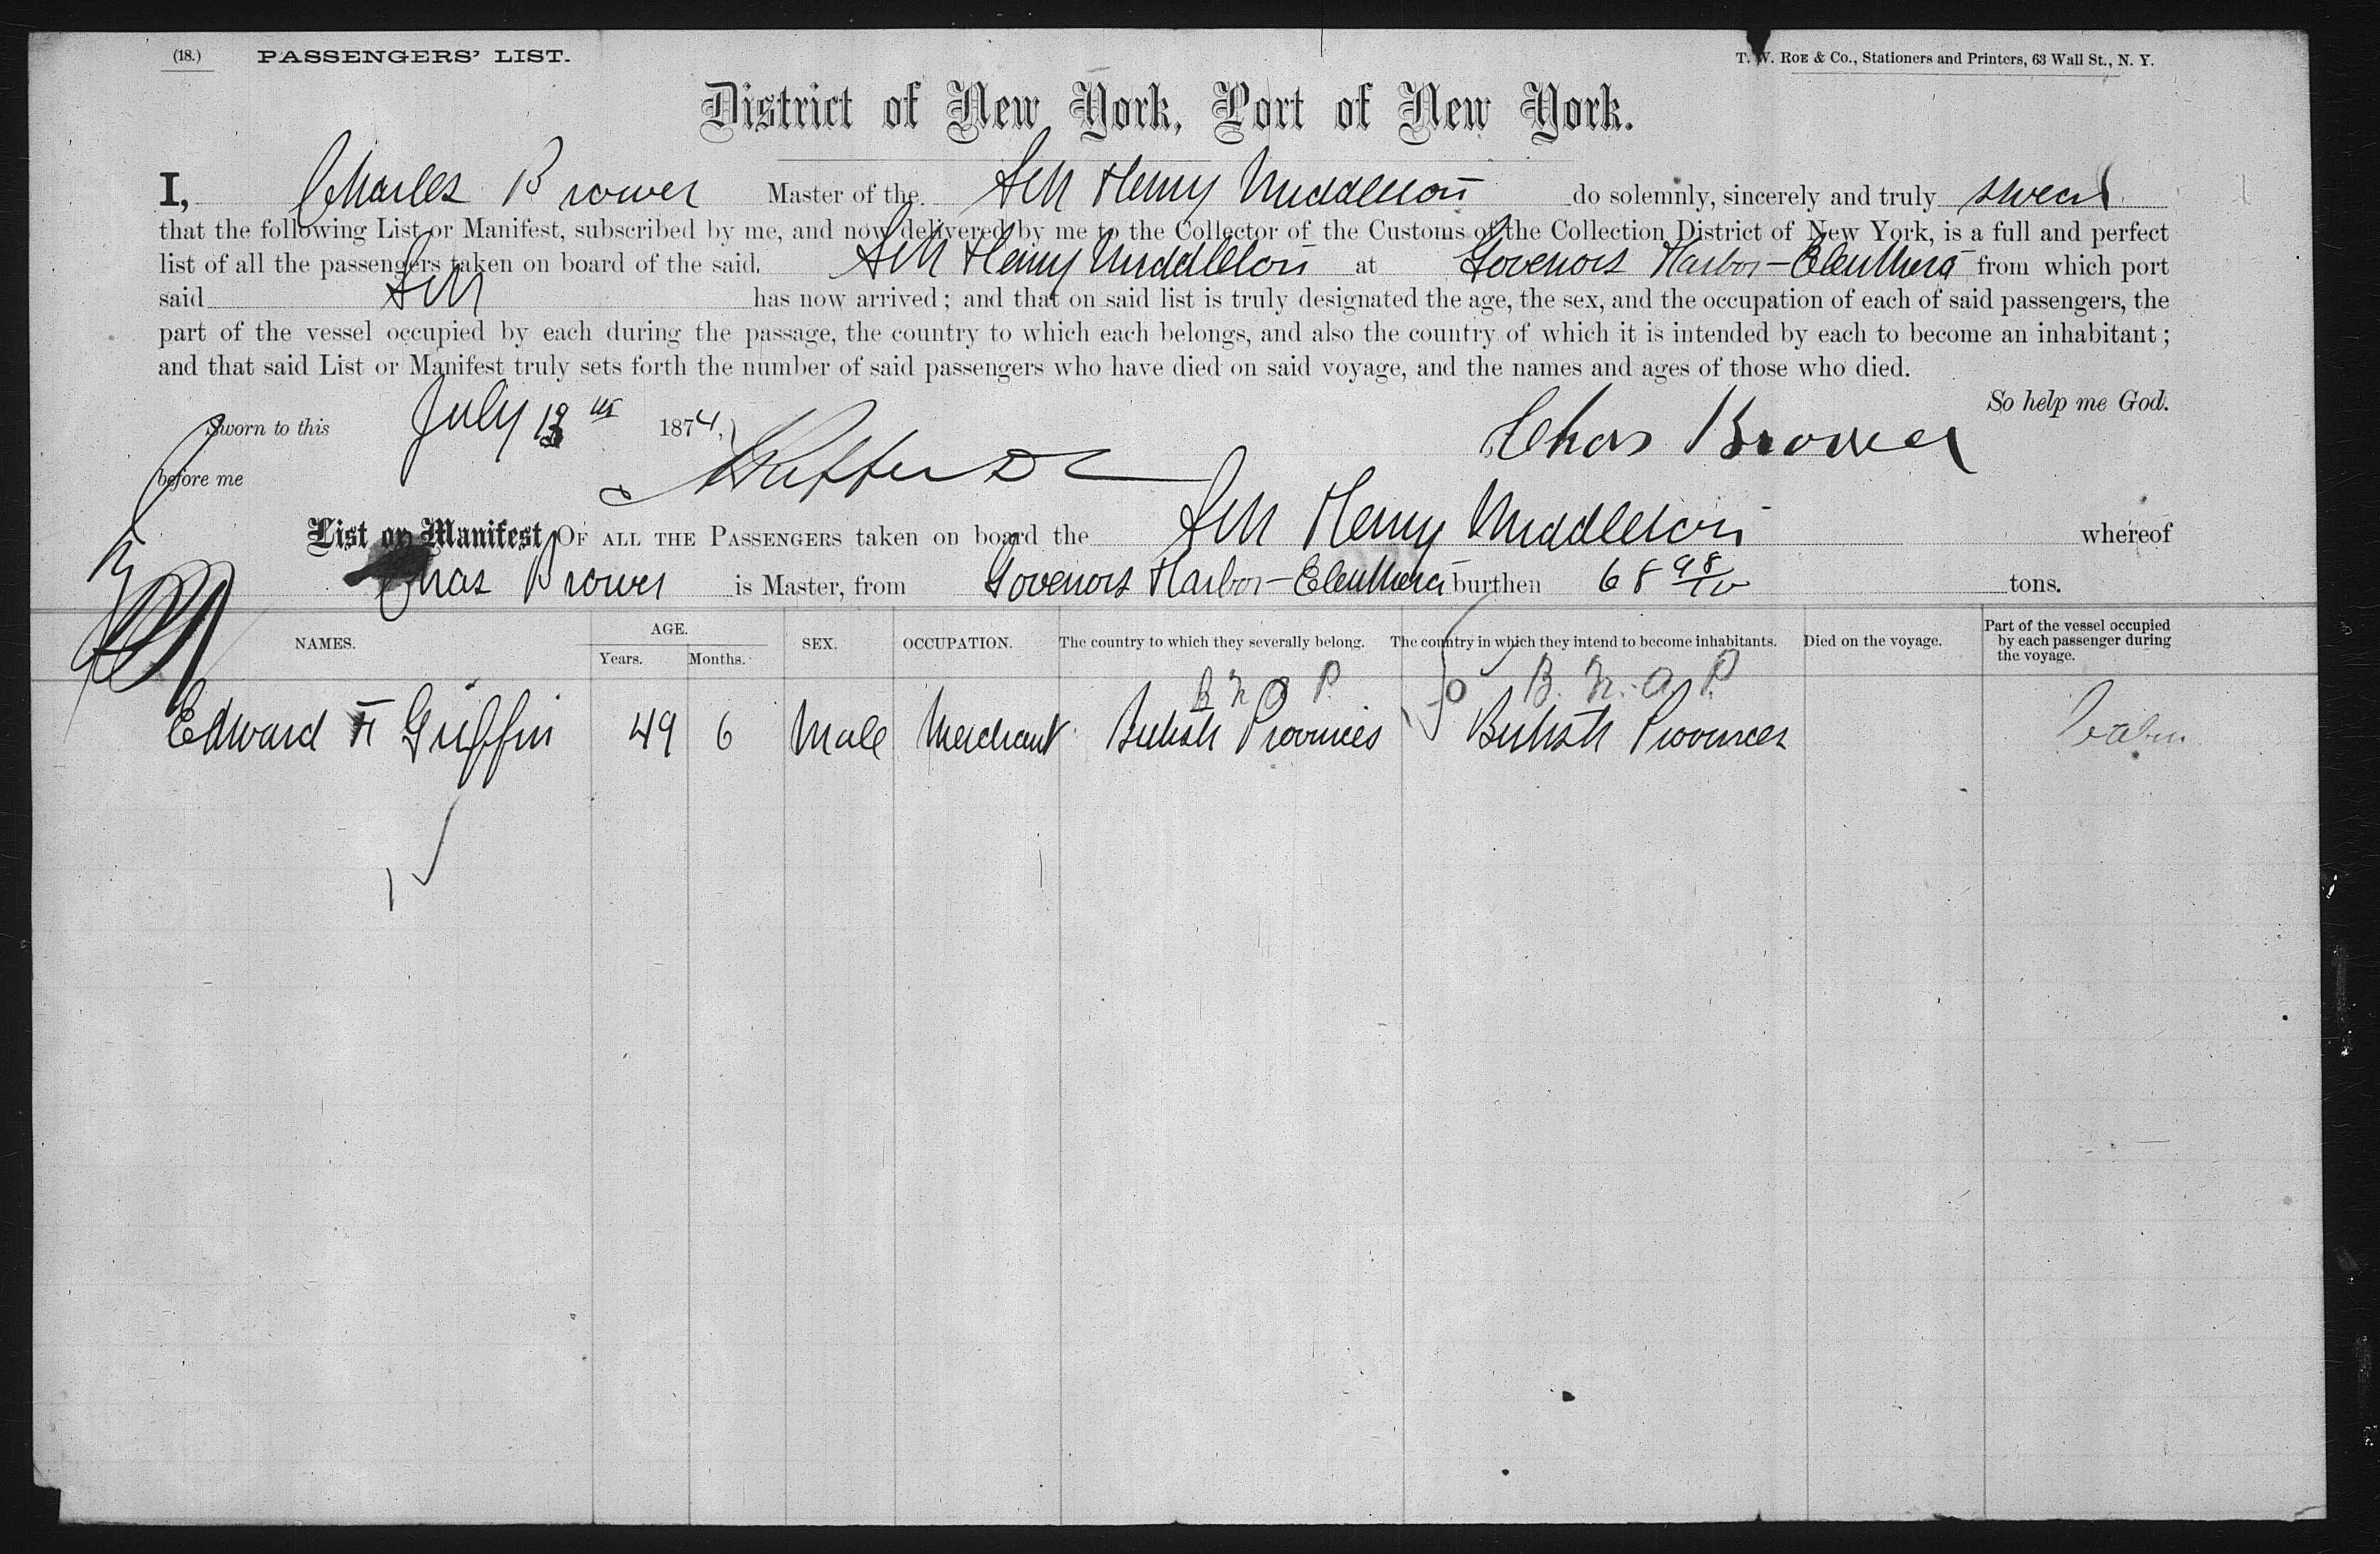 (18.) PASSENGERS' LIST. T. W. ROE & Co., Stationers and Printers, 63 Wall St., N. Y.
District of New York, Port of New York.
I, Charles Brower Master of the Sch Henry Middleton do solemnly, sincerely and truly swear
that the following List or Manifest, subscribed by me, and now delivered by me to the Collector of the Customs of the Collection District of New York, is a full and perfect
list of all the passengers taken on board of the said Sch Henry Middleton at Govenors Harbor - Eleuthera from which port
said Sch has now arrived; and that on said list is truly designated the age, the sex, and the occupation of each of said passengers, the
part of the vessel occupied by each during the passage, the country to which each belongs, and also the country of which it is intended by each to become an inhabitant;
and that said List or Manifest truly sets forth the number of said passengers who have died on said voyage, and the names and ages of those who died.
So help me God.
Sworn to this July 13 1874,
Chas Brower
before me
List or Manifest OF ALL THE PASSENGERS taken on board the Sch Henry Middleton whereof
Chas Brower is Master, from Govenors Harbor - Eleuthera burthen 68 98/10 tons.
NAMES. AGE. Years. Months. SEX. OCCUPATION. The country to which they severally belong. The country in which they intend to become inhabitants. Died on the voyage. Part of the vessel occupied by each passenger during the voyage.
B N A P. B. N. A P.
Edward H Griffin 49 6 Male Merchant British Provinces British Provinces Cabin